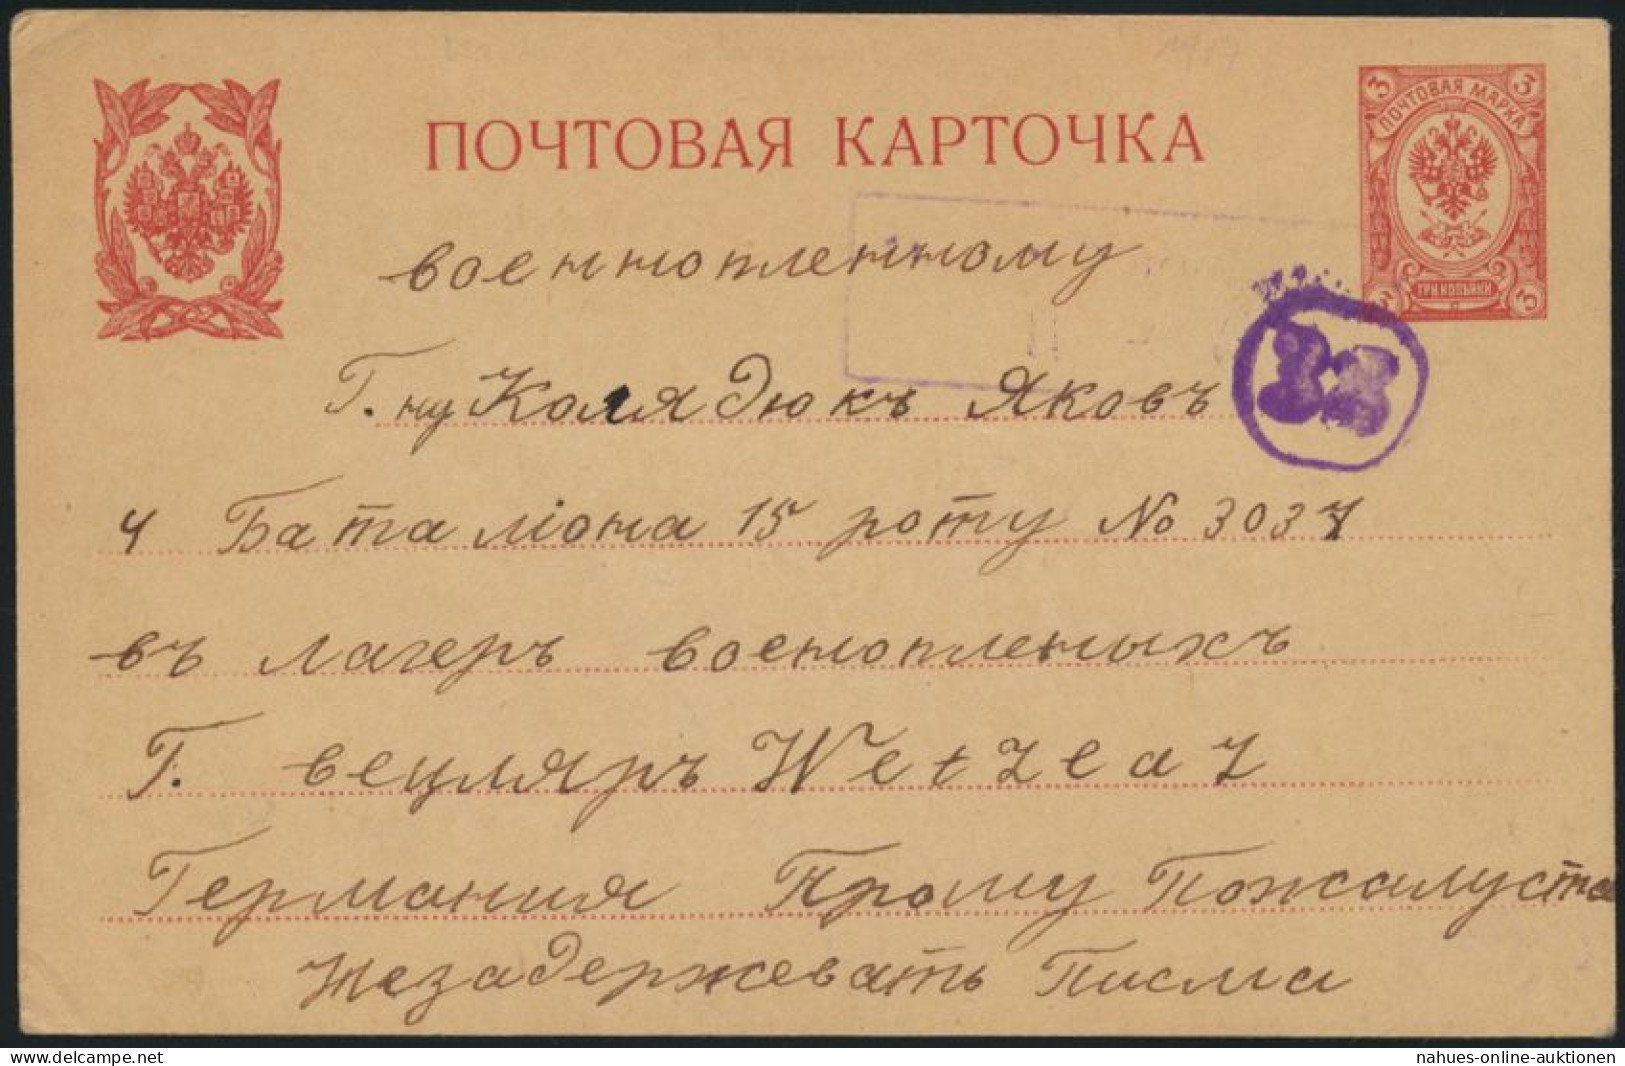 1917
ПОЧТОВАЯ КАРТОЧКА
3 3
ПОЧТОВАЯ МАРКА
ТРИ КОПѢЙКИ
3
военнопленному
Г.ну КолядЮкъ Яковъ
4 Баталіона 15 роту No 3037
въ лагеръ военопленыхъ
Г. вецляръ Wetzlar
Германия Прошу Пожалуста
Незадержевать Писма
delcampe.net
nahues-online-auktionen